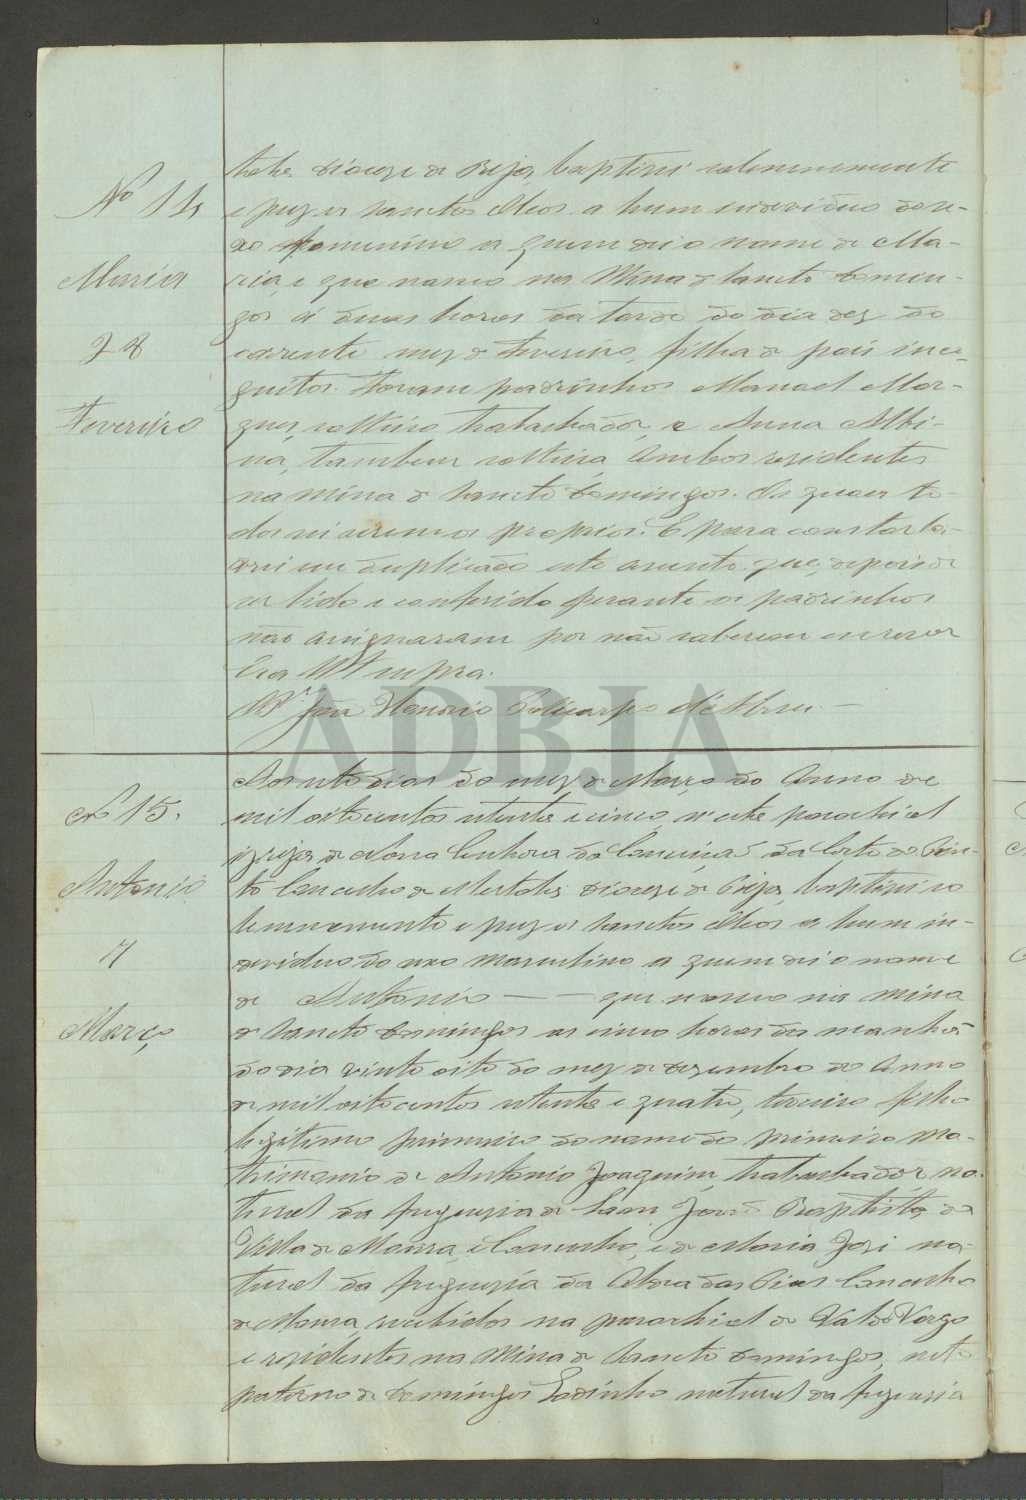 Nº 14
Maria
28
Fevereiro
tola, diocese de Beja, baptisei solemnemente
e puz os sanctos oleos a hum individuo do se-
xo femenino a quem dei o nome de Ma-
ria, e que nasceo na Mina de Sancto Domin-
gos ás duas horas da tarde do dia dez do
corrente mez de Fevereiro, filha de pais inco-
gnitos. Foram padrinhos Manoel Mar-
ques, solteiro, trabalhador, e Anna Albi-
na, tambem solteira, ambos residentes
na mina de Sancto Domingos. Os quaes to-
dos sei serem os proprios. E para constar la-
vrei em duplicado este assento, que, depois de
ser lido e conferido perante os padrinhos
não assignaram por não saberem escrever
Era ut supra.
João Honorio Policarpo d'Abreu
Nº 15.
Antonio
7
Março
Aos sete dias do mez de Março do Anno de
mil oitocentos setenta e cinco, n'esta parochial
igreja de Nossa Senhora da Conceição da Corte do Pin-
to Concelho de Mertola, diocese de Beja, baptisei so
lemnemente e puz os sanctos oleos a hum in-
dividuo do sexo masculino a quem dei o nome
de Antonio — — que nasceo na mina
de Sancto Domingos as cinco horas da manhã
do dia vinte oito do mez de dezembro do Anno
de mil oitocentos setenta e quatro, terceiro filho
legitimo primeiro do nome do primeiro ma-
trimonio de Antonio Joaquim, trabalhador, na-
tural da freguezia de Sam João Baptista, da
Villa de Moura, e Concelho, e de Maria José na-
tural da freguezia da Aldea das Pias Concelho
de Moura, recebidos na parochial de Val de Vargo
e residentes na Mina de Sancto Domingos, neto
paterno de Domingos Godinho natural da freguezia
ADBJA